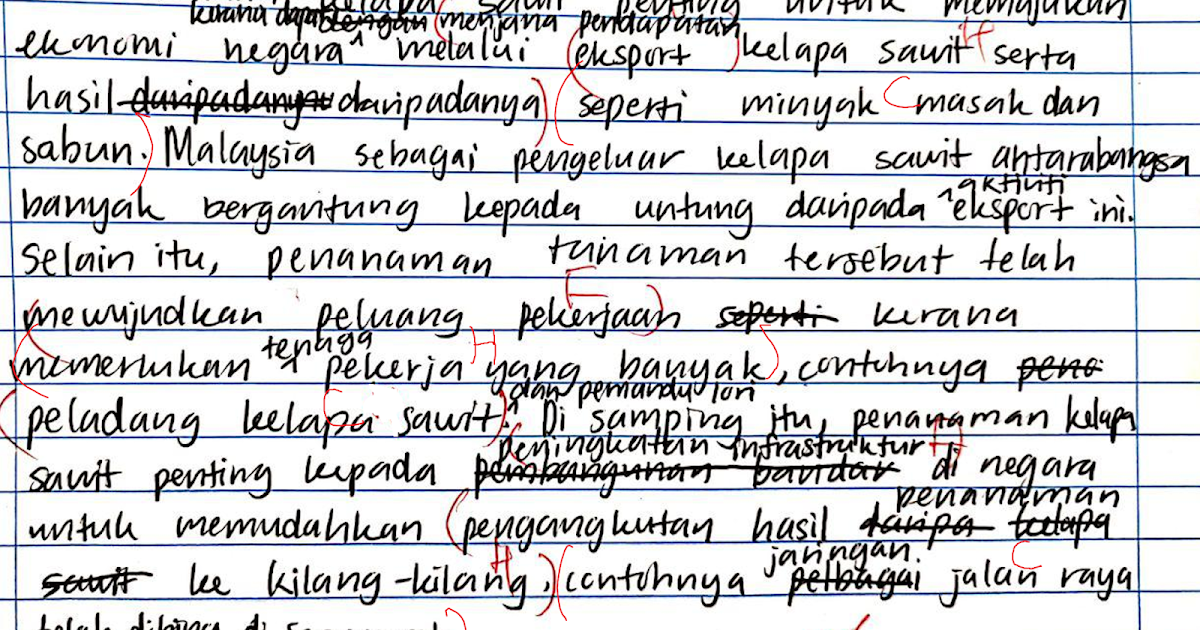 kelapa sawit penting untuk memajukan
kerana dapat dengan menjana pendapatan
ekonomi negara ^ melalui eksport kelapa sawit serta
hasil daripadanya daripadanya seperti minyak masak dan
sabun. Malaysia sebagai pengeluar kelapa sawit antarabangsa
aktiviti
banyak bergantung kepada untung daripada ^ eksport ini.
Selain itu, penanaman tanaman tersebut telah
mewujudkan peluang pekerjaan seperti kerana
tenaga
memerlukan ^ pekerja yang banyak, contohnya
dan pemandu lori
peladang kelapa sawit ^. Di samping itu, penanaman kelapa
peningkatan infrastruktur
sawit penting kepada pembangunan bandar di negara
penanaman
untuk memudahkan pengangkutan hasil daripa kelapa
jaringan
sawit ke kilang-kilang, contohnya pelbagai jalan raya
telah dibina di